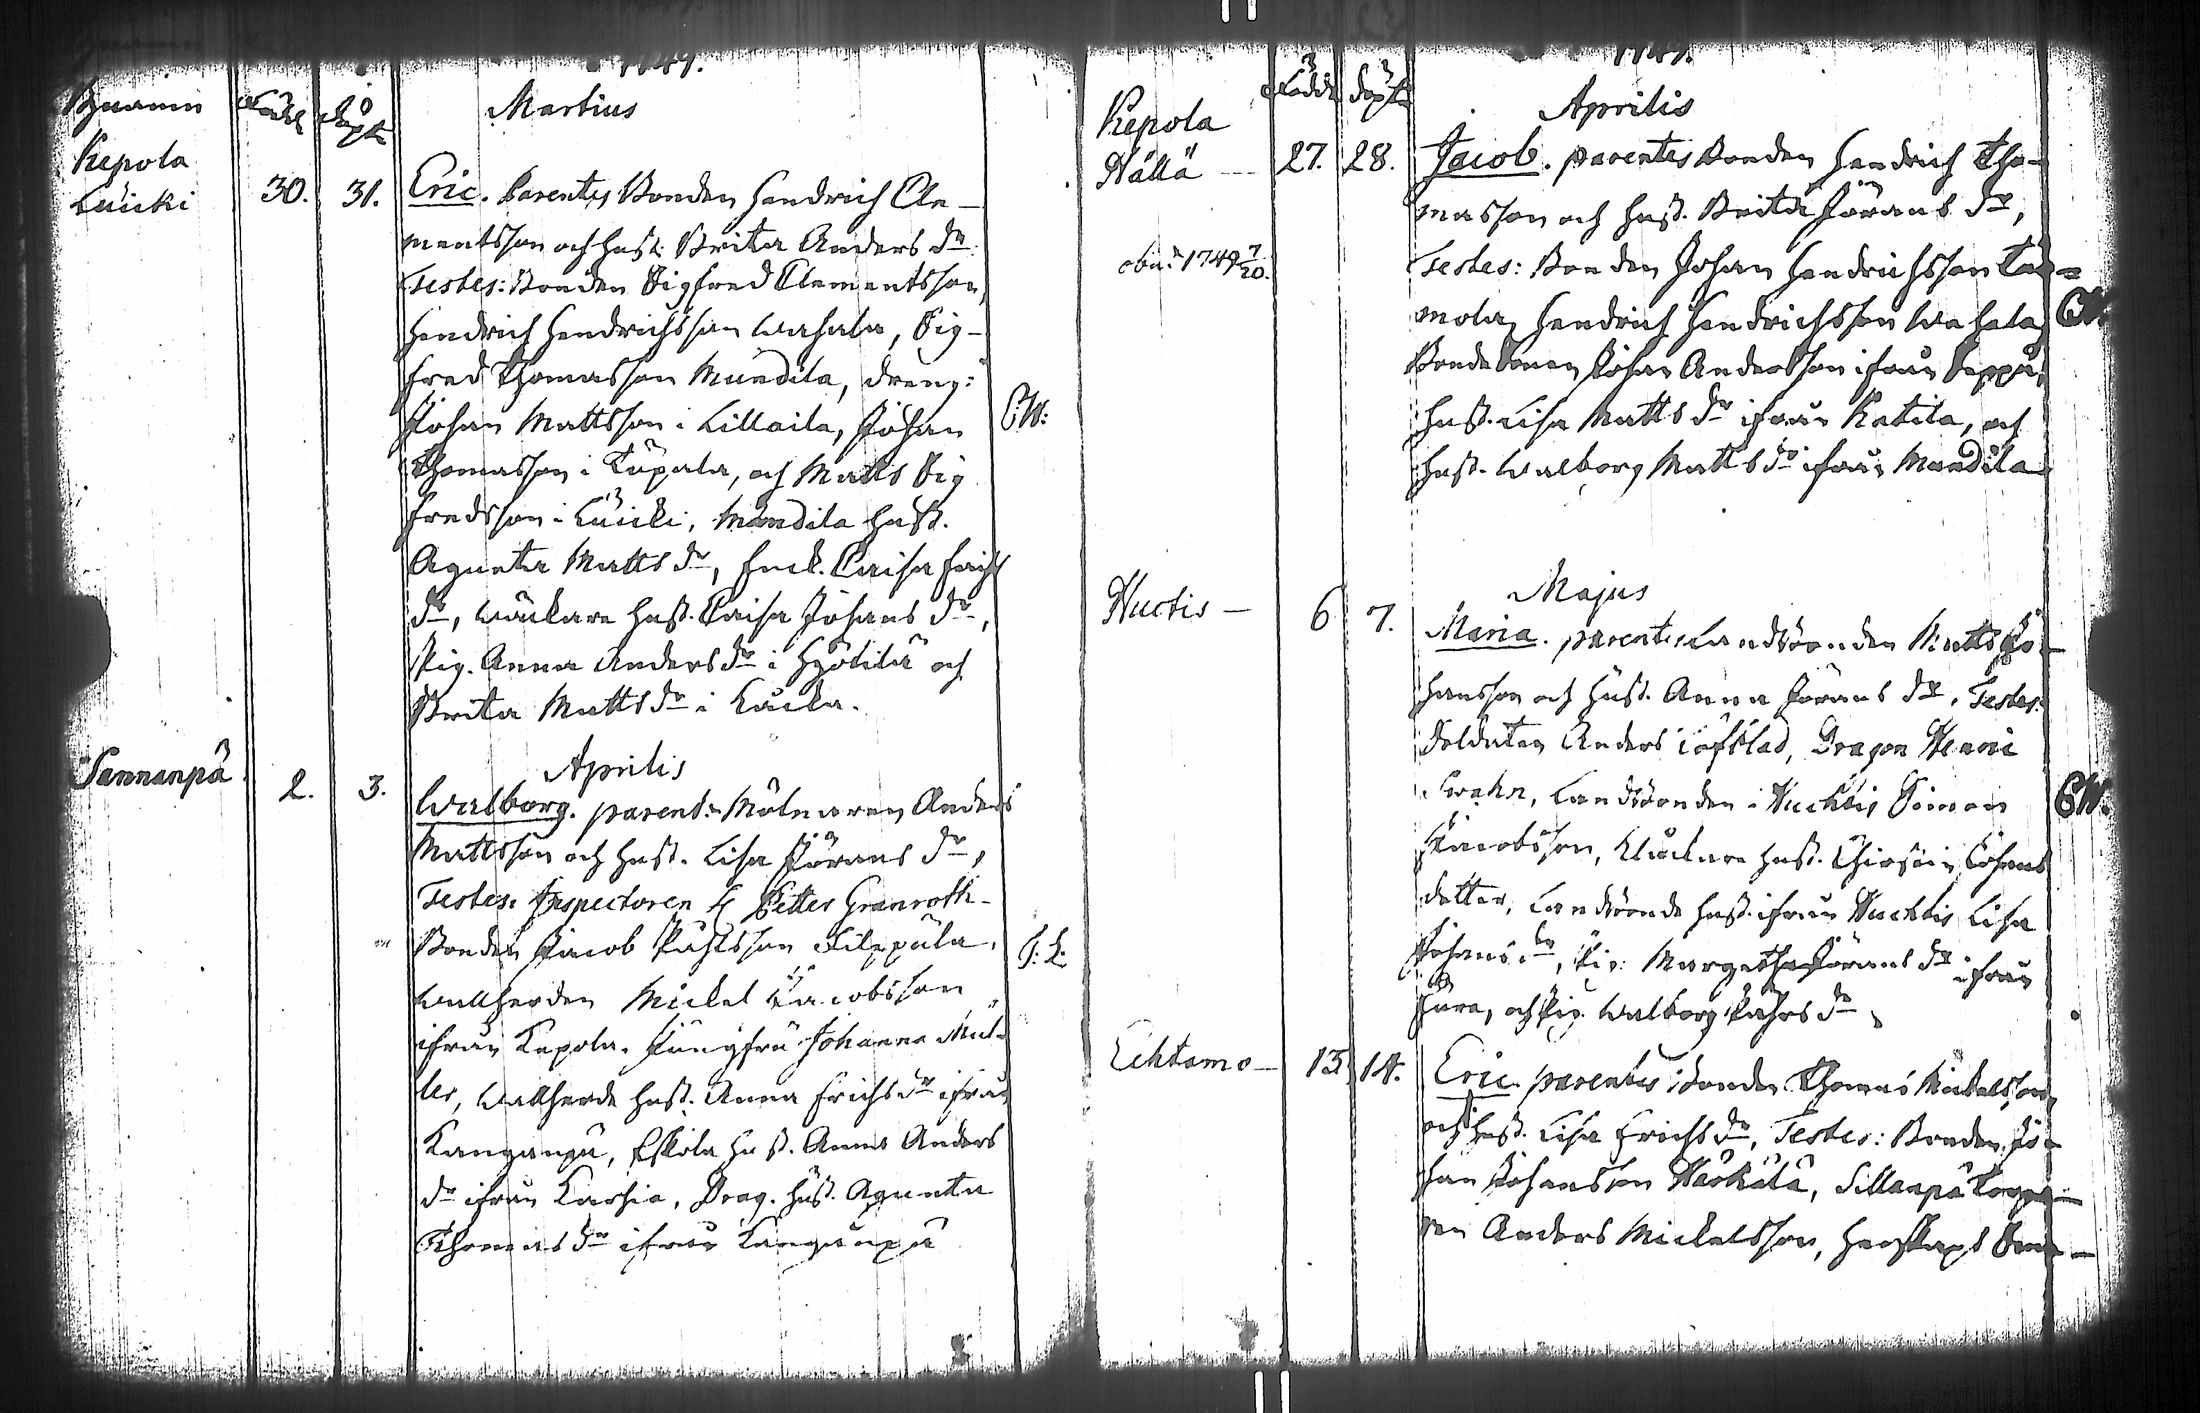 1749.
Byarnes Födde döpte Martius
Kepola
Luicki 30. 31. Eric. Parentes Bonden Hendrich Cle-
mentsson och hust. Brita Anders dr.
Testes: Bonden Sigfred Clementsson,
Hendrich Hendrichsson Wahala, Sig-
fred Thomasson Mundila, dreng:
Johan Mattsson i Lillaila, Johan
Thomasson i Tupala, och Matts Sig
fredsson i Luicki, Mundila hust.
Agneta Matts dr, Enck. Caisa Erichs
dr, hust. Caisa Johans dr,
Pig. Anna Anders dr i och
Brita Matts dr i
C.W:
Aprilis
Sannanpä 2. 3. Walborg. parent: Mölnaren Anders
Mattsson och hust. Lisa Jörans dr,
Testes: Inspectoren H Petter Granroth-
Bonden Jacob Påhlsson Filppula,
Wallherden Mickel Jacobsson
ifrån Kepola. Jungfru Johanna Mul-
ler, Wallherde hust. Anna Erichs dr ifrån
Kanganpä, Eskola hust. Anna Anders
dr ifrån Karhia, Drag. hust. Agneta
Thomas dr ifrån Kanganpä
1749.
Födde döpte Aprilis
Kepola
Nällä 27. 28. Jacob. parentes Bonden Hendrich Tho-
masson och hust. Brita Jörans dr,
obiit 1749 7/20. Testes: Bonden Johan Hendrichsson Tam=
mola, Hendrich Hendrichsson Wahala,
Bondesonen Johan Andersson ifrån Seppä,
hust. Lisa Matts dr ifrån Katila, och
hust. Walborg Matts dr ifrån Mundila
C.W.
Majus
Huctis 6 7. Maria. parentes Landbonden Matts Jo-
hansson och hust. Anna Jörans dr, Testes:
Soldaten Anders Löfblad, Dragon Henric
Swahn, Landbonden i Huchtis Simon
Jacobsson, Klockare hust. Johans
dotter, Landbonde hust. ifrån Huchtis Lisa
Johans dr, Pig: Margetha Jörans dr ifrån
och Pig. Walborg Påhls dr
C.W.
Echtamo 13 14. Eric parentes Bonden Thomas Mickelsson,
och hust. Lisa Erichs dr, Testes: Bonden Jo-
han Johansson Härkälä, Sillanpä
Anders Mickelsson,